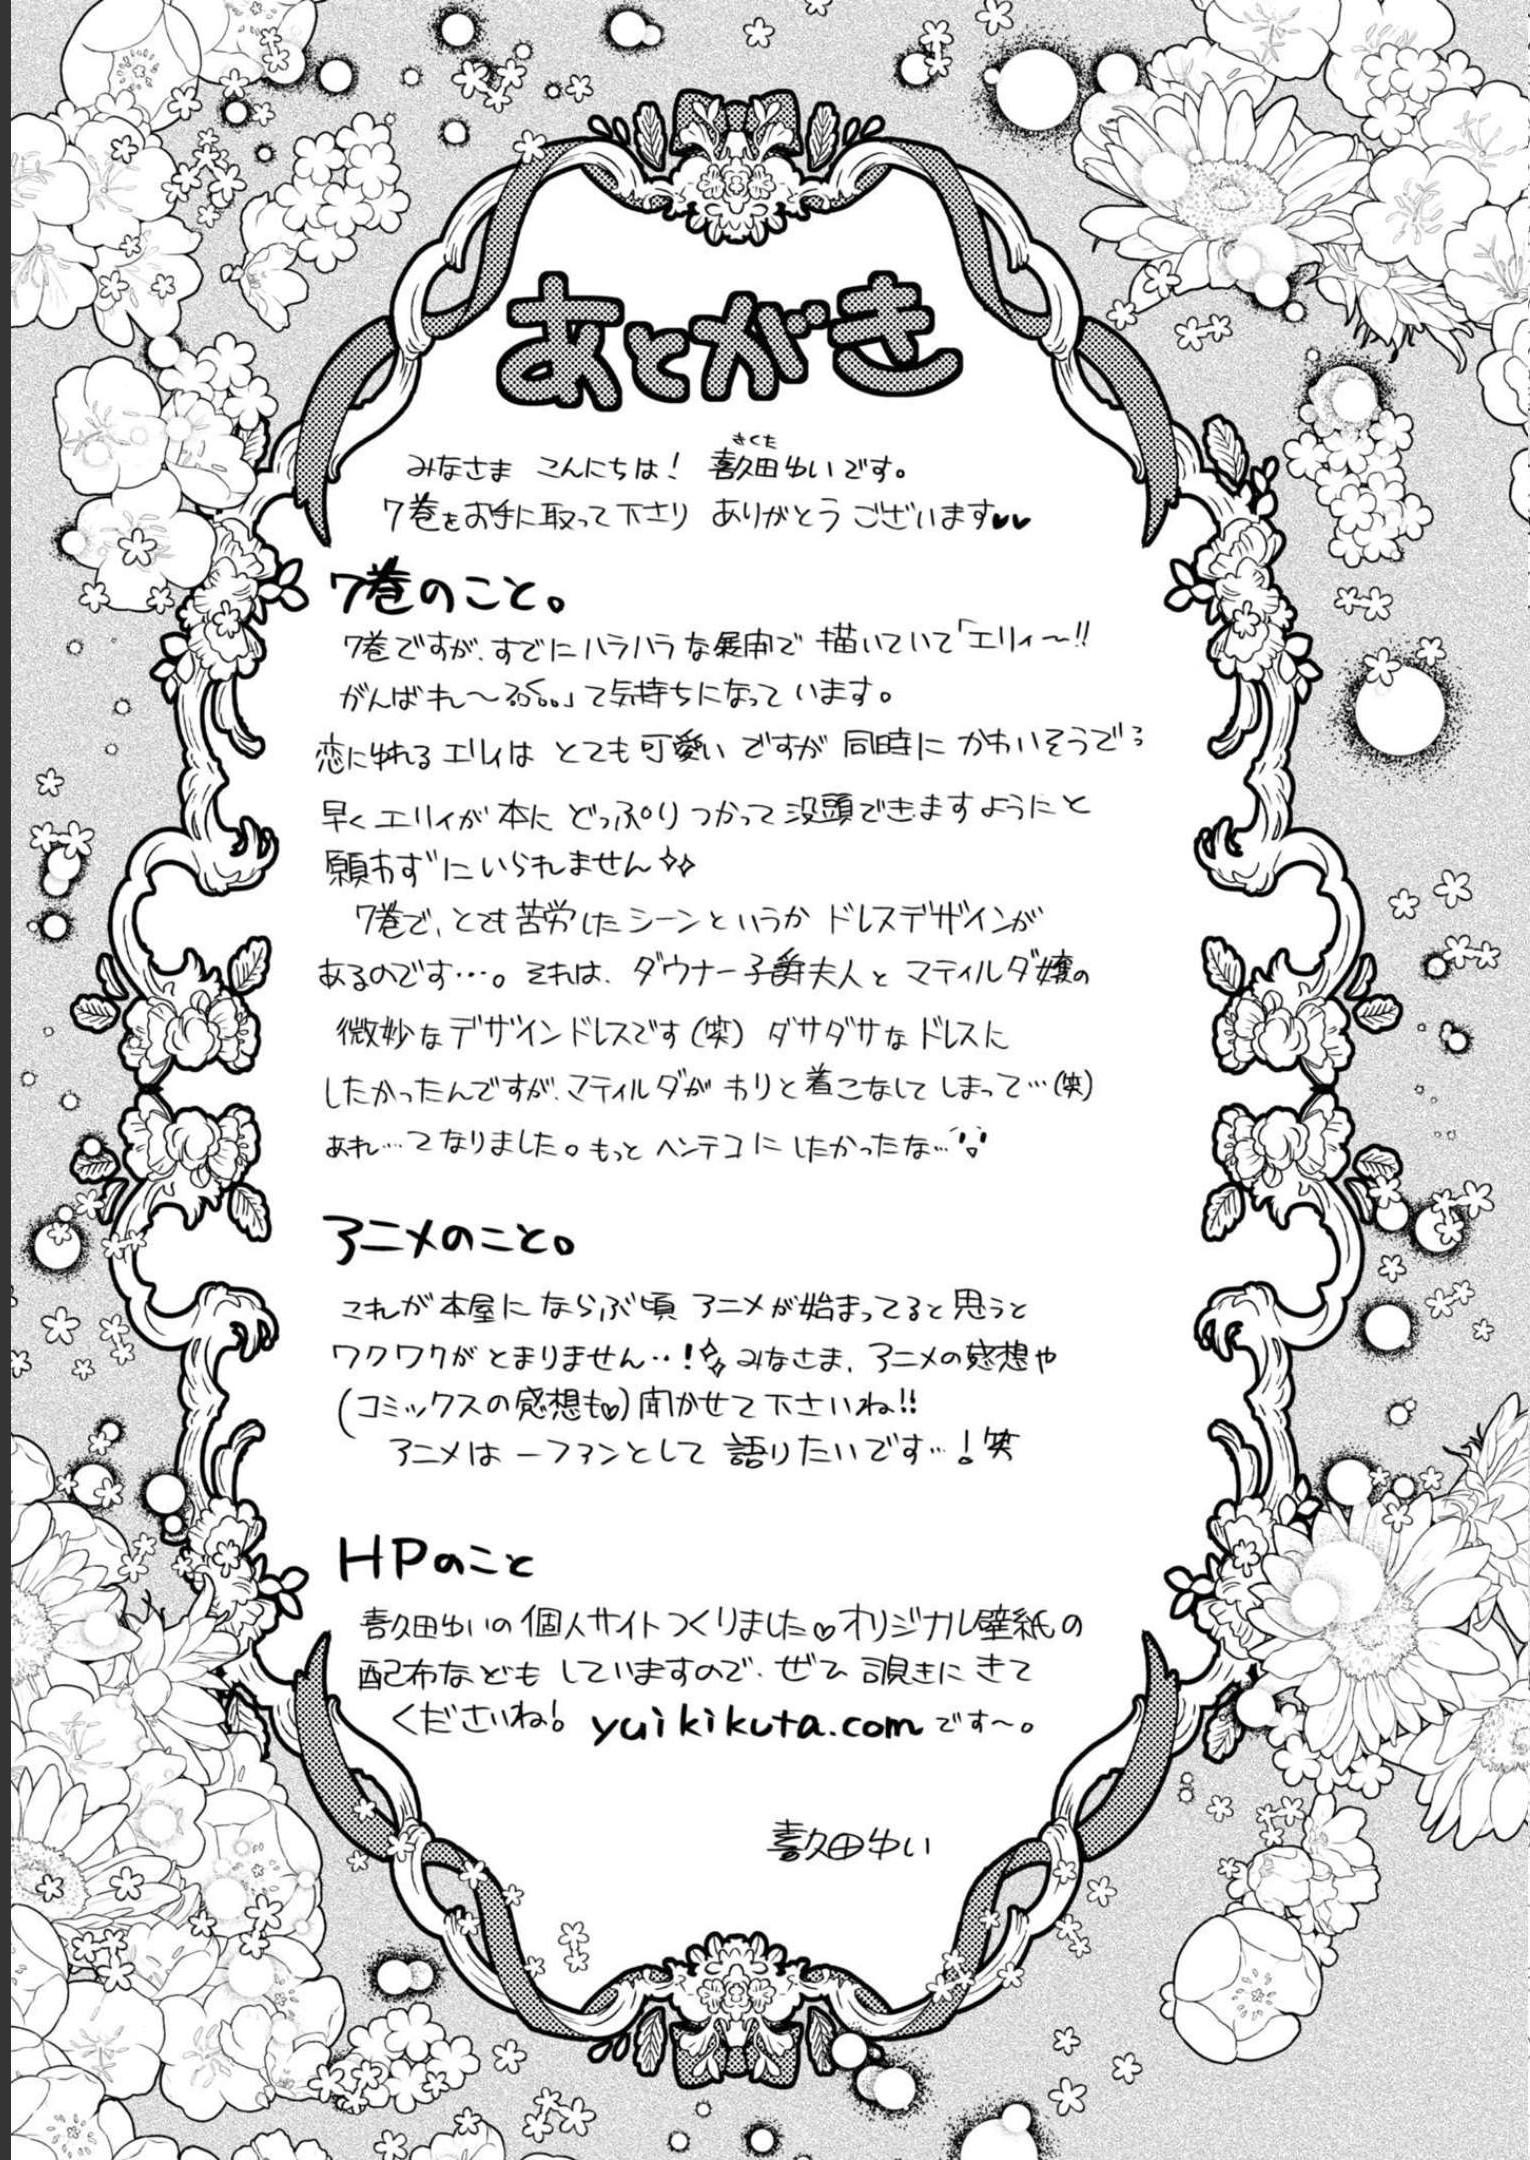 あとがき
みなさま こんにちは! 喜久田ゆいです。
きくた
7巻をお手に取って下さり ありがとうございます♥♥
7巻のこと。
7巻ですが、すでにハラハラな展開で 描いていて「エリィ〜!!
がんばれ〜」って気持ちになっています。
恋に破れるエリィは とても可愛いですが 同時に かわいそうで
早くエリィが本に どっぷりつかって没頭できますようにと
願わずにいられません✧✧
7巻で、とても苦労したシーンというか ドレスデザインが
あるのです…。それは、ダウナー子爵夫人とマティルダ嬢の
微妙なデザインドレスです(笑) ダサダサなドレスに
したかったんですが、マティルダが わりと着こなしてしまって…(笑)
あれ…てなりました。もっとヘンテコに したかったな…
アニメのこと。
これが本屋に ならぶ頃 アニメが始まってると思うと
ワクワクが とまりません‥!✧ みなさま、アニメの感想や
(コミックスの感想も♡)聞かせて下さいね!!
アニメは 一ファンとして 語りたいです…!笑
HPのこと
喜久田ゆいの個人サイトつくりました♡オリジナル壁紙の
配布なども していますので、ぜひ 覗きに きて
くださいね! yuikikuta.comです〜。
喜久田ゆい